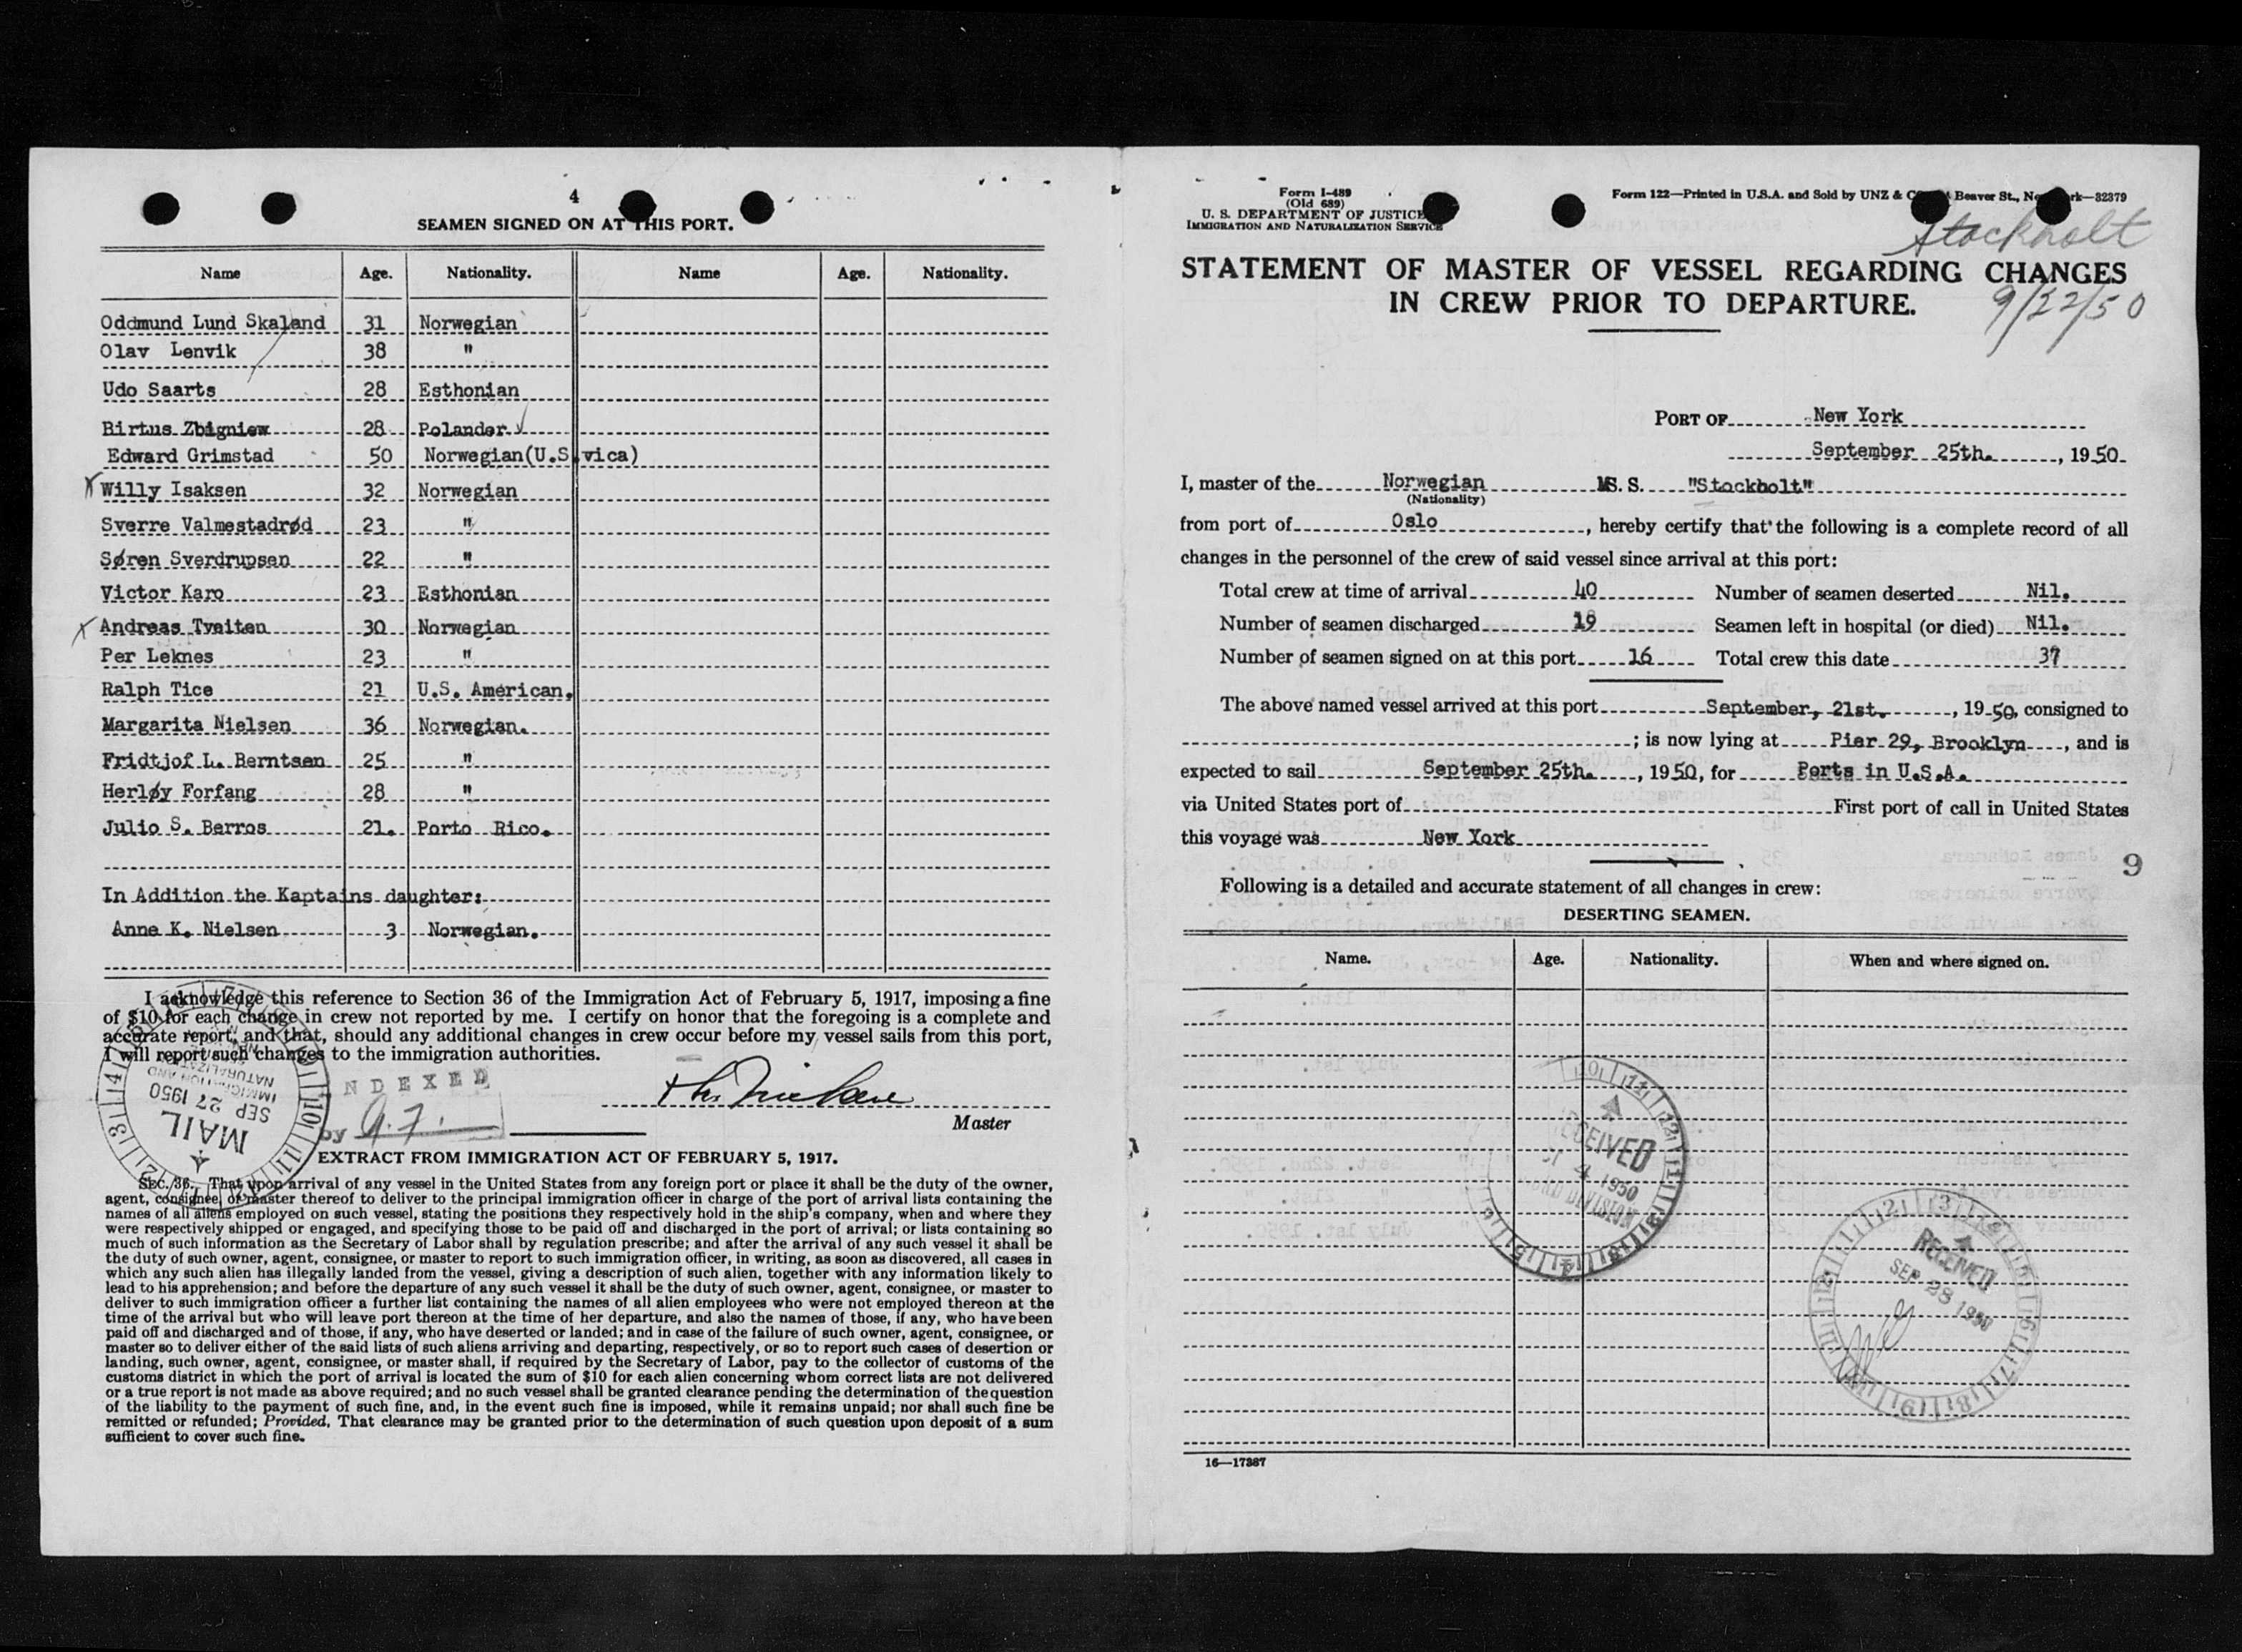 4
SEAMEN SIGNED ON AT THIS PORT.
Name Age. Nationality. Name Age. Nationality.
Oddmund Lund Skaland 31 Norwegian
Olav Lenvik 38 "
Udo Saarts 28 Esthonian
Birtus Zbigniew 28 Polander.
Edward Grimstad 50 Norwegian(U.S.vica)
Willy Isaksen 32 Norwegian
Sverre Valmestadrød 23 "
Søren Sverdrupsen 22 "
Victor Karo 23 Esthonian
Andreas Tveiten 30 Norwegian
Per Leknes 23 "
Ralph Tice 21 U.S. American.
Margarita Nielsen 36 Norwegian.
Fridtjof L. Berntsen 25 "
Herløy Forfang 28 "
Julio S. Berros 21. Porto Rico.
In Addition the Kaptains daughter:
Anne K. Nielsen 3 Norwegian.
I acknowledge this reference to Section 36 of the Immigration Act of February 5, 1917, imposing a fine
of $10 for each change in crew not reported by me. I certify on honor that the foregoing is a complete and
accurate report, and that, should any additional changes in crew occur before my vessel sails from this port,
I will report such changes to the immigration authorities.
NDEXED
by
Master
MAIL
SEP 27 1950
IMMIGRATION AND
NATURALIZATION
EXTRACT FROM IMMIGRATION ACT OF FEBRUARY 5, 1917.
SEC. 36. That upon arrival of any vessel in the United States from any foreign port or place it shall be the duty of the owner,
agent, consignee, or master thereof to deliver to the principal immigration officer in charge of the port of arrival lists containing the
names of all aliens employed on such vessel, stating the positions they respectively hold in the ship's company, when and where they
were respectively shipped or engaged, and specifying those to be paid off and discharged in the port of arrival; or lists containing so
much of such information as the Secretary of Labor shall by regulation prescribe; and after the arrival of any such vessel it shall be
the duty of such owner, agent, consignee, or master to report to such immigration officer, in writing, as soon as discovered, all cases in
which any such alien has illegally landed from the vessel, giving a description of such alien, together with any information likely to
lead to his apprehension; and before the departure of any such vessel it shall be the duty of such owner, agent, consignee, or master to
deliver to such immigration officer a further list containing the names of all alien employees who were not employed thereon at the
time of the arrival but who will leave port thereon at the time of her departure, and also the names of those, if any, who have been
paid off and discharged and of those, if any, who have deserted or landed; and in case of the failure of such owner, agent, consignee, or
master so to deliver either of the said lists of such aliens arriving and departing, respectively, or so to report such cases of desertion or
landing, such owner, agent, consignee, or master shall, if required by the Secretary of Labor, pay to the collector of customs of the
customs district in which the port of arrival is located the sum of $10 for each alien concerning whom correct lists are not delivered
or a true report is not made as above required; and no such vessel shall be granted clearance pending the determination of the question
of the liability to the payment of such fine, and, in the event such fine is imposed, while it remains unpaid; nor shall such fine be
remitted or refunded; Provided, That clearance may be granted prior to the determination of such question upon deposit of a sum
sufficient to cover such fine.
Form I-489
(Old 689)
U. S. DEPARTMENT OF JUSTICE
IMMIGRATION AND NATURALIZATION SERVICE
Form 122—Printed in U.S.A. and Sold by UNZ & C Beaver St., N rk—32379
Stockholt
STATEMENT OF MASTER OF VESSEL REGARDING CHANGES
IN CREW PRIOR TO DEPARTURE.
9/22/50
PORT OF New York
September 25th. , 1950
I, master of the Norwegian MS. S. "Stockholt"
(Nationality)
from port of Oslo , hereby certify that the following is a complete record of all
changes in the personnel of the crew of said vessel since arrival at this port:
Total crew at time of arrival 40 Number of seamen deserted Nil.
Number of seamen discharged 19 Seamen left in hospital (or died) Nil.
Number of seamen signed on at this port 16 Total crew this date 37
The above named vessel arrived at this port September, 21st. , 1950, consigned to
; is now lying at Pier 29, Brooklyn , and is
expected to sail September 25th. , 1950, for Ports in U.S.A.
via United States port of First port of call in United States
this voyage was New York
9
Following is a detailed and accurate statement of all changes in crew:
DESERTING SEAMEN.
Name. Age. Nationality. When and where signed on.
CEIVED
4 1950
DIVISION
RECEIVED
SEP 28 1950
16—17387